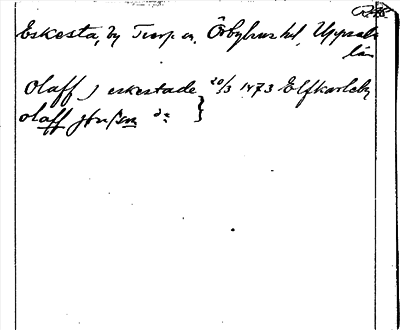 Eskesta, by Tierp sn, Örbyhus hd, Uppsala
län
Olaff j eskestade 20/3 1473 Elfkarleby
olaff